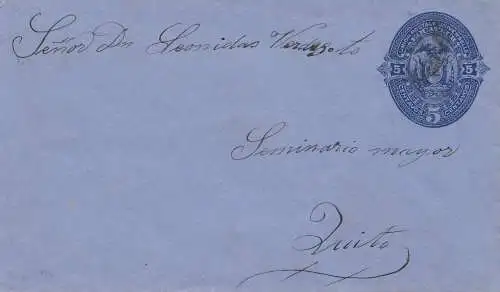 Señor Dn Leonidas Verdesoto
Seminario mayor
Quito
5 5
5